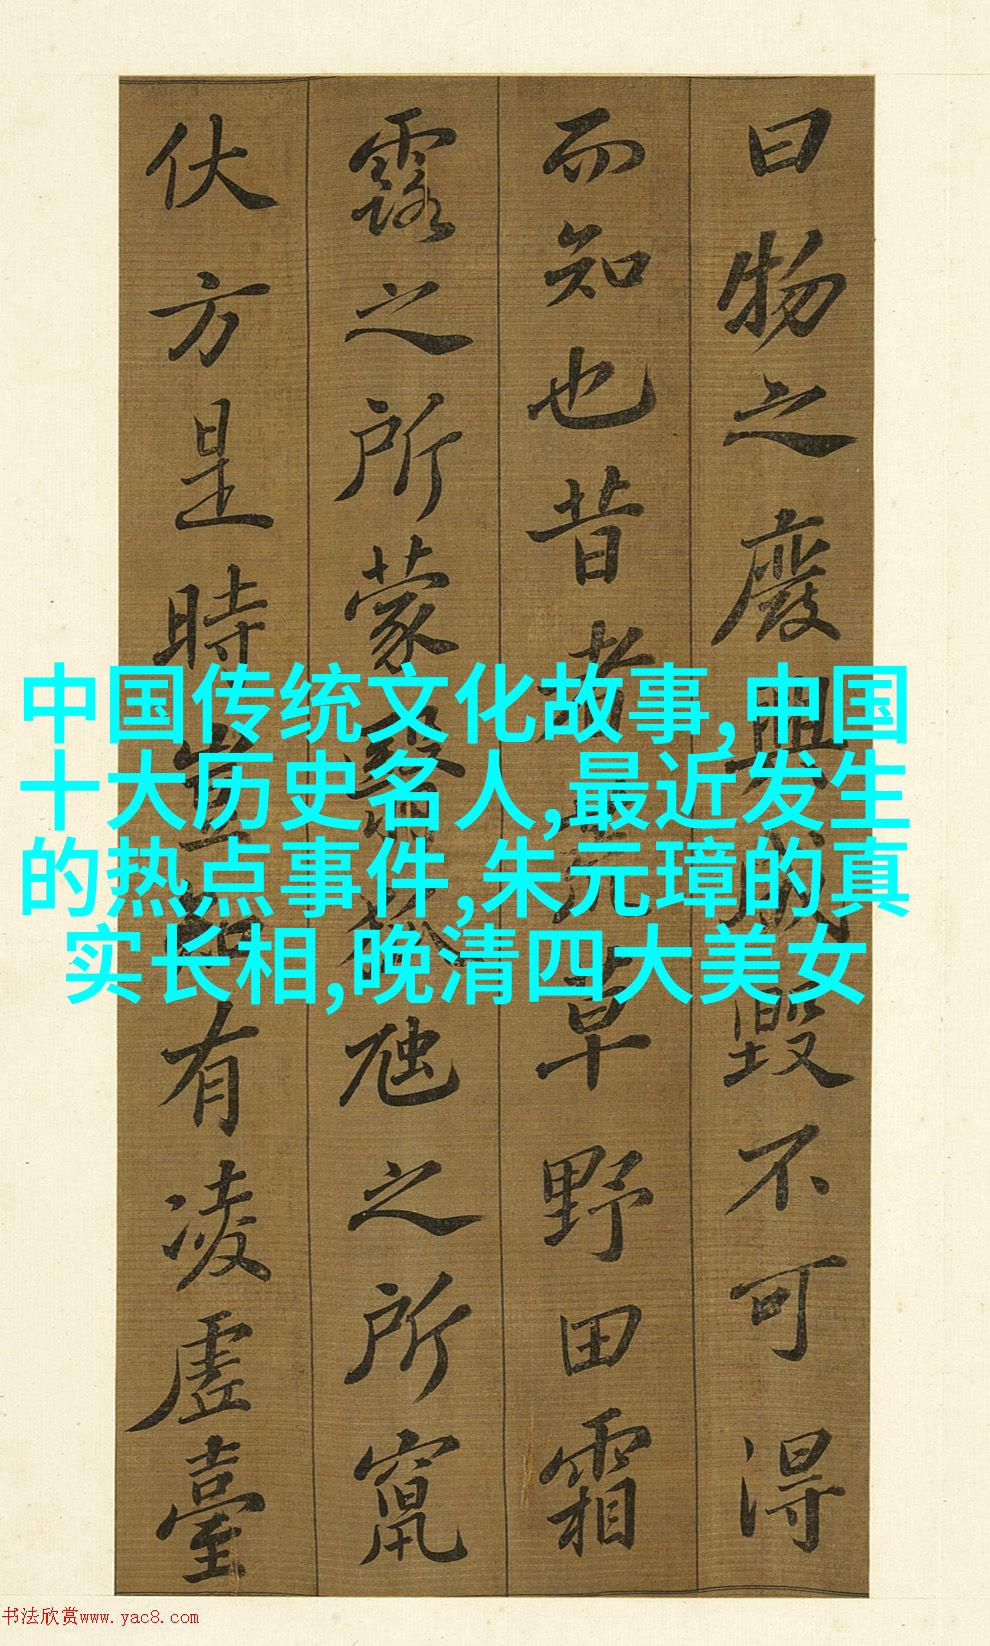 曰物之廢興成毀不可得
而知也昔者荒草野田霜
露之所蒙翳狐虺之所竄
伏方是時豈知有凌虛臺
中国传统文化故事,中国
十大历史名人,最近发生
的热点事件,朱元璋的真
实长相,晚清四大美女
书法欣赏www.yac8.com